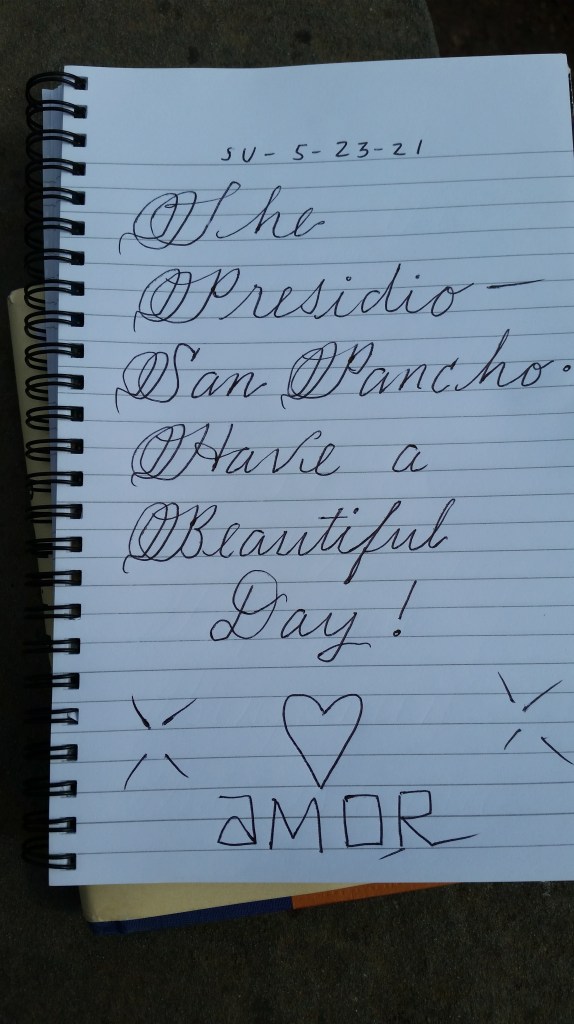 SU-5-23-21
The
Presidio-
San Pancho.
Have a
Beautiful
Day!
aMOR